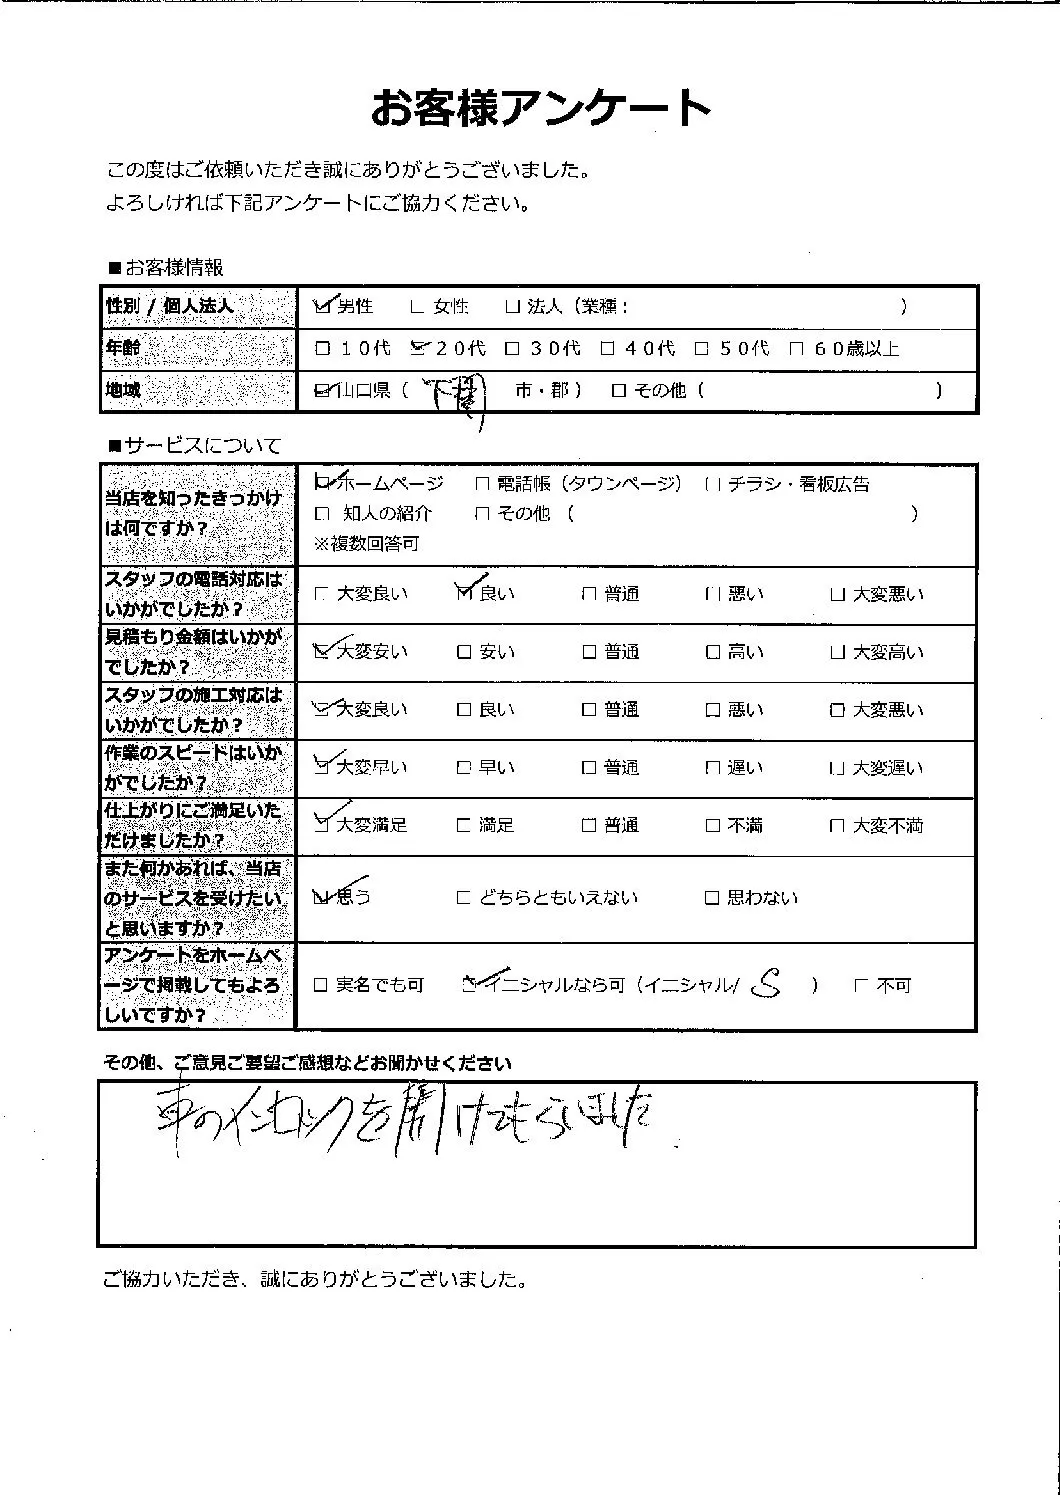 お客様アンケート
この度はご依頼いただき誠にありがとうございました。
よろしければ下記アンケートにご協力ください。
■お客様情報
性別 / 個人法人 ☑男性 □ 女性 □ 法人（業種： ）
年齢 □ 10代 ☑20代 □ 30代 □ 40代 □ 50代 □ 60歳以上
地域 ☑山口県（ 下関 市・郡） □ その他（ ）
■サービスについて
当店を知ったきっかけは何ですか？ ☑ホームページ □ 電話帳（タウンページ） □ チラシ・看板広告
□ 知人の紹介 □ その他 （ ）
※複数回答可
スタッフの電話対応はいかがでしたか？ □ 大変良い ☑良い □ 普通 □ 悪い □ 大変悪い
見積もり金額はいかがでしたか？ ☑大変安い □ 安い □ 普通 □ 高い □ 大変高い
スタッフの施工対応はいかがでしたか？ ☑大変良い □ 良い □ 普通 □ 悪い □ 大変悪い
作業のスピードはいかがでしたか？ ☑大変早い □ 早い □ 普通 □ 遅い □ 大変遅い
仕上がりにご満足いただけましたか？ ☑大変満足 □ 満足 □ 普通 □ 不満 □ 大変不満
また何かあれば、当店のサービスを受けたいと思いますか？ ☑思う □ どちらともいえない □ 思わない
アンケートをホームページで掲載してもよろしいですか？ □ 実名でも可 ☑イニシャルなら可（イニシャル/ S ） □ 不可
その他、ご意見ご要望ご感想などお聞かせください
車のインロックを開けてもらいました
ご協力いただき、誠にありがとうございました。